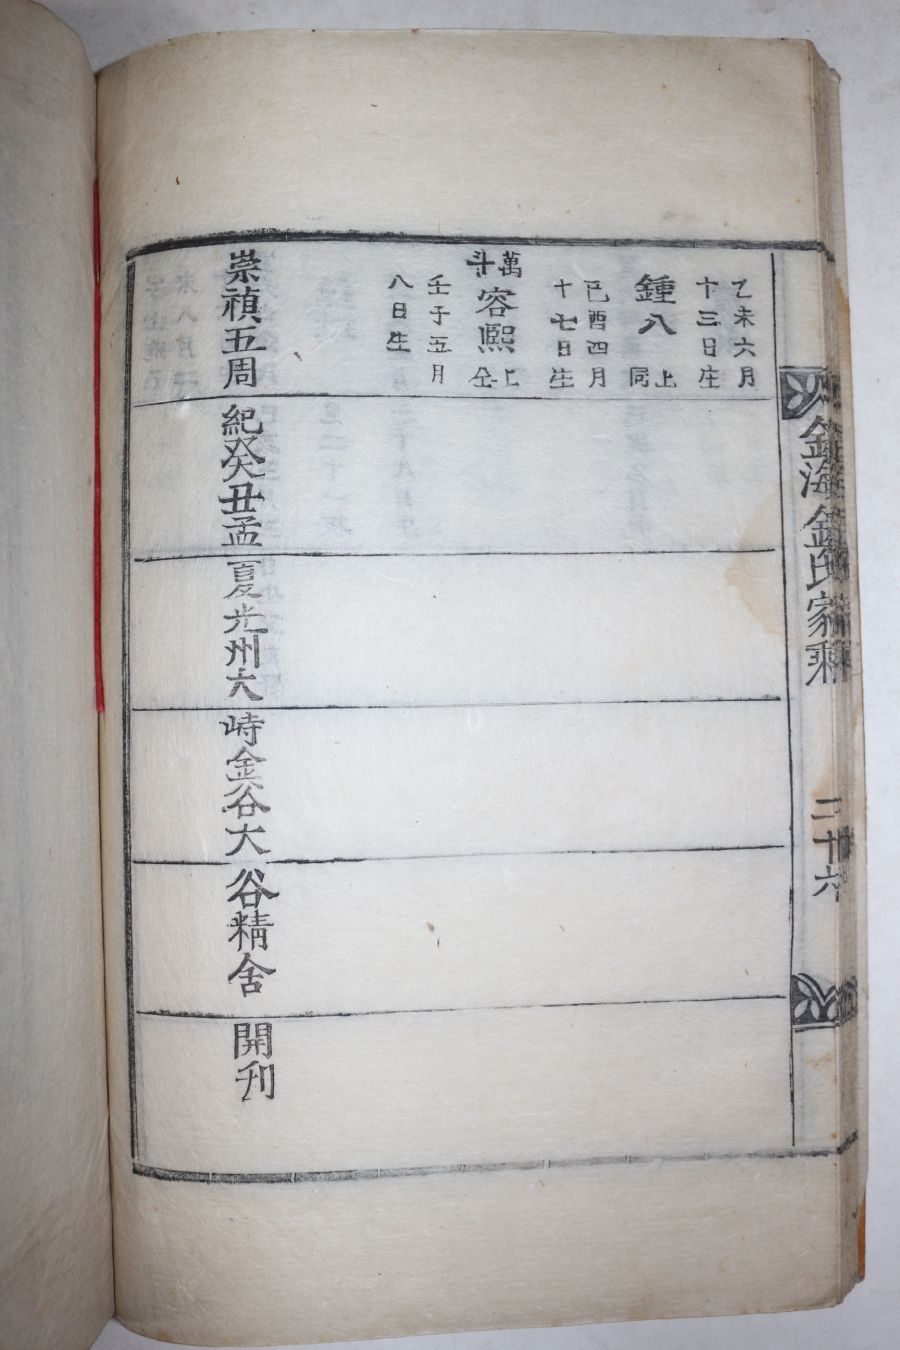 金海金氏家乘
二十六
乙未六月
十三日生
鍾八
上
同
己酉四月
十七日生
萬
斗
容熙
上
仝
壬子五月
八日生
崇禎五周紀癸丑孟夏光州大峙金谷大谷精舍開刋